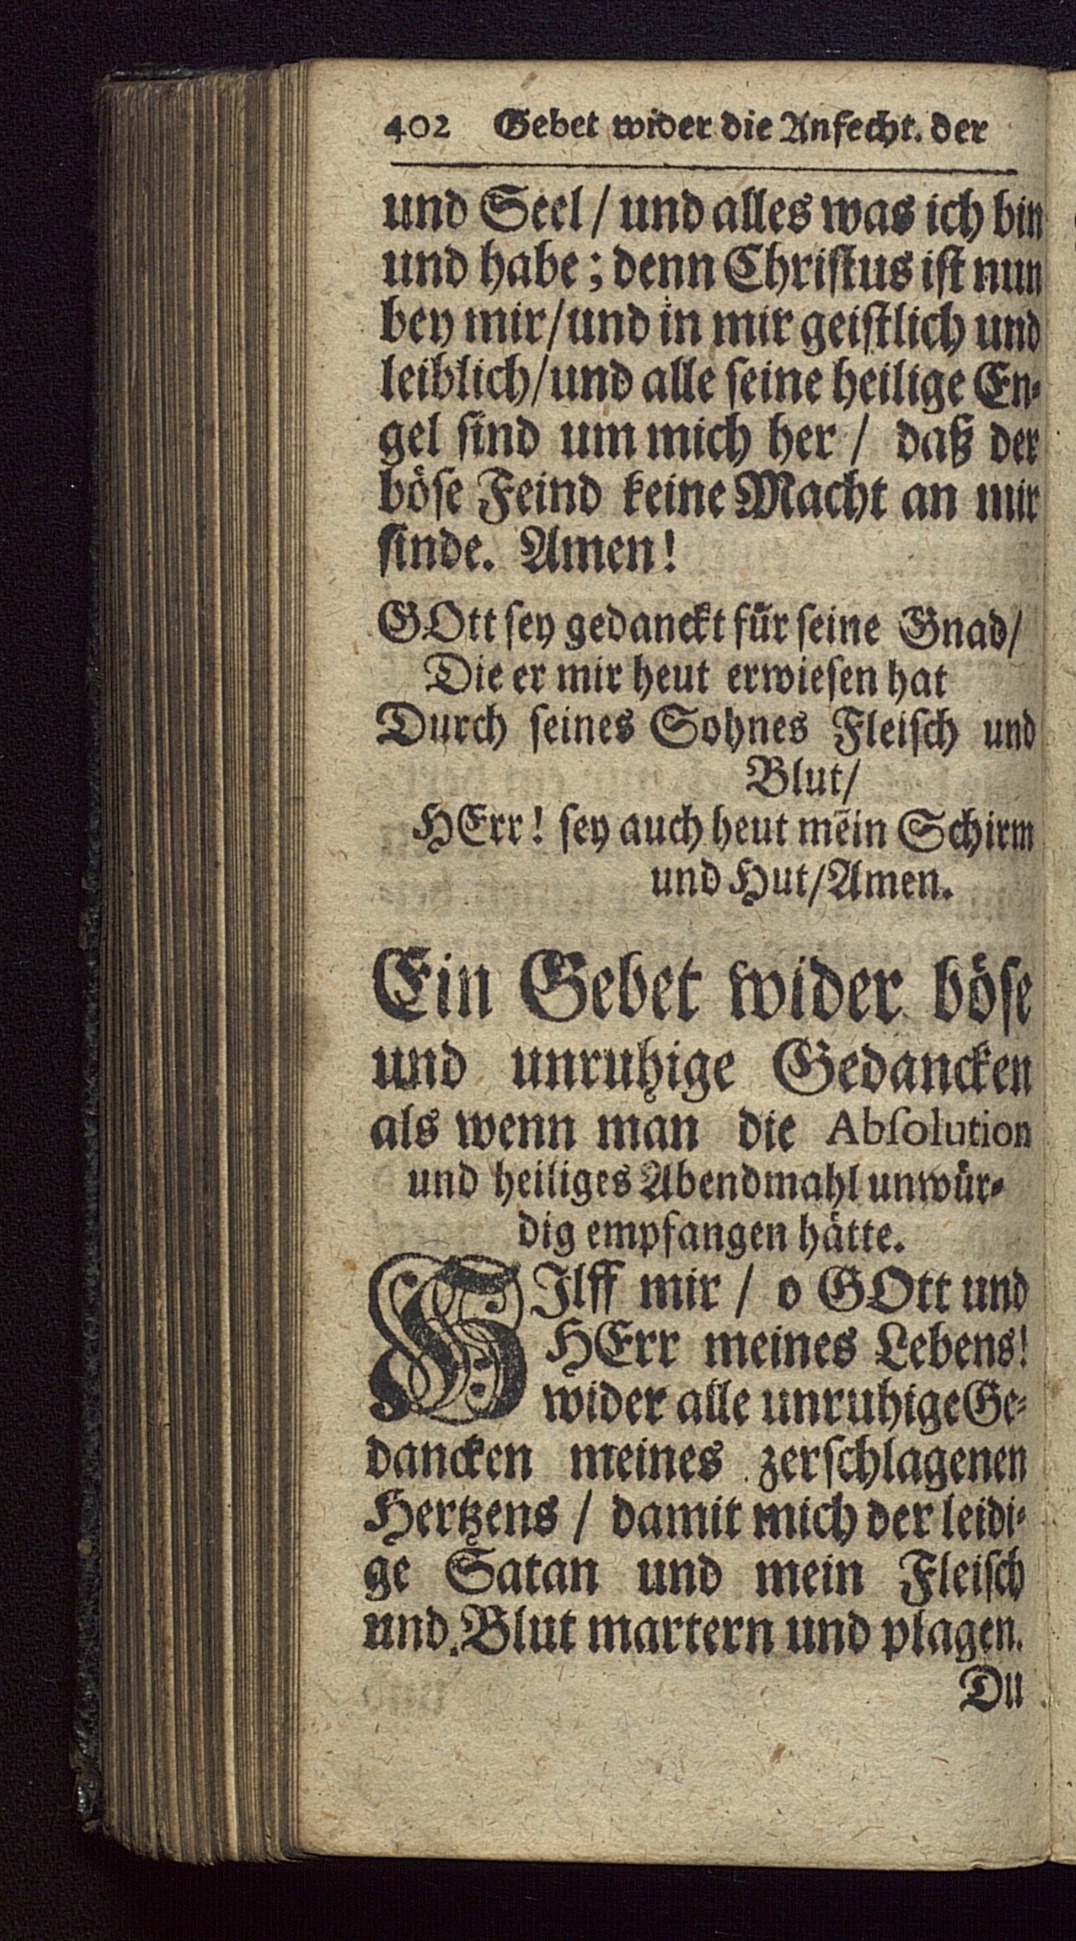 402 Gebet wider die Anfecht. der
und Seel / und alles was ich bin
und habe; denn Christus ist nun
bey mir / und in mir geistlich und
leiblich / und alle seine heilige En-
gel sind um mich her / daß der
böse Feind keine Macht an mir
finde. Amen!
GOtt sey gedanckt für seine Gnad /
Die er mir heut erwiesen hat
Durch seines Sohnes Fleisch und
Blut /
HErr! sey auch heut mein Schirm
und Hut / Amen.
Ein Gebet wider böse
und unruhige Gedancken
als wenn man die Absolution
und heiliges Abendmahl unwür-
dig empfangen hätte.
HIlff mir / o GOtt und
HErr meines Lebens!
wider alle unruhige Ge-
dancken meines zerschlagenen
Hertzens / damit mich der leidi-
ge Satan und mein Fleisch
und Blut martern und plagen.
Du